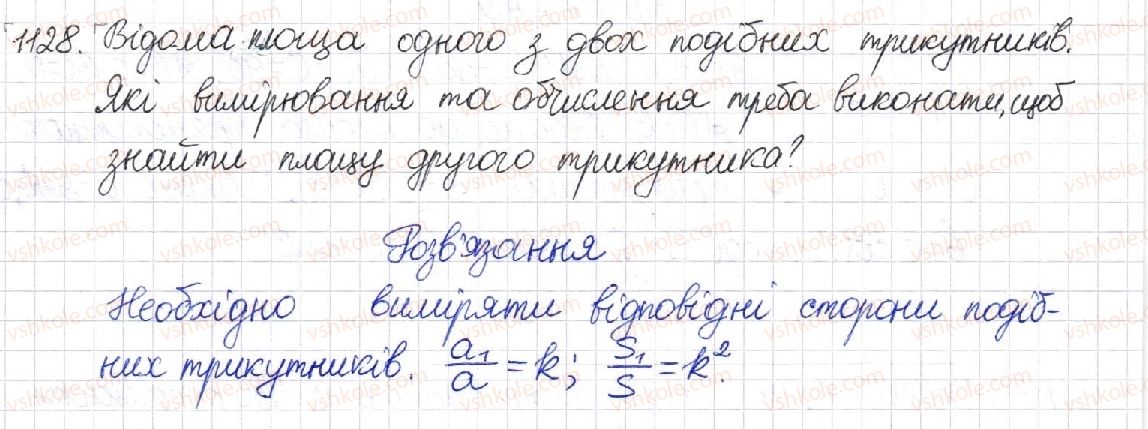 1128. Відома площа одного з двох подібних трикутників.
Які вимірювання та обчислення треба виконати, щоб
знайти площу другого трикутника?
Розв'язання
Необхідно виміряти відповідні сторони подіб-
них трикутників. a₁/a = k; S₁/S = k².